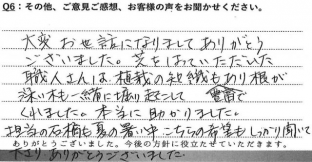 Q6：その他、ご意見ご感想、お客様の声をお聞かせください。
大変お世話になりましてありがとう
ございました。芝をはっていただいた
職人さんは、植栽の知識もあり根が
深い木も一緒に掘り起こして
くれました。本当に助かりました。
担当の石橋も夏の暑い中こちらの希望もしっかり聞いて
ありがとうございました。今後の方針に役立たせていただきます。
ありがとうございました